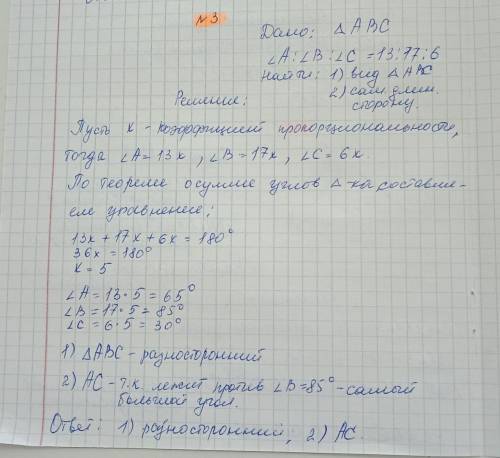 №3.
Дано: △ABC
∠A:∠B:∠C = 13:17:6
Найти: 1) вид △ABC
2) сам. длин. сторону.
Решение:
Пусть x - коэффициент пропорциональности,
тогда ∠A=13x, ∠B=17x, ∠C=6x.
По теореме о сумме углов △-ка составля-
ем уравнение:
13x+17x+6x=180°
36x=180°
x=5
∠A=13·5=65°
∠B=17·5=85°
∠C=6·5=30°
1) △ABC - разносторонний
2) AC - т.к. лежит против ∠B=85° - самый
большой угол.
Ответ: 1) разносторонний; 2) AC.